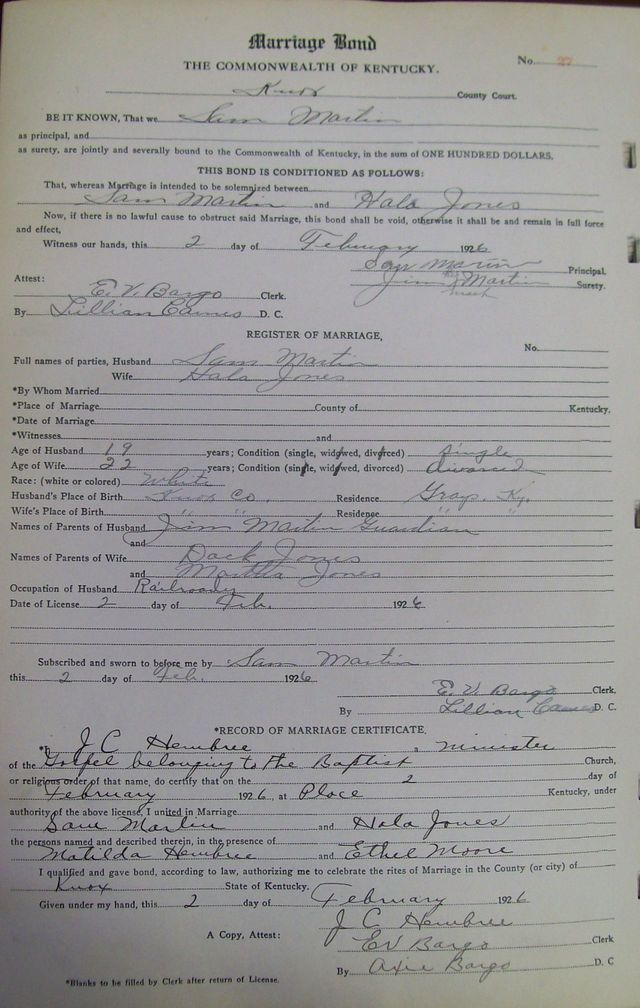 Marriage Bond
THE COMMONWEALTH OF KENTUCKY.
No. 27
Knox County Court.
BE IT KNOWN, That we Sam Martin
as principal, and
as surety, are jointly and severally bound to the Commonwealth of Kentucky, in the sum of ONE HUNDRED DOLLARS.
THIS BOND IS CONDITIONED AS FOLLOWS:
That, whereas Marriage is intended to be solemnized between
Sam Martin and Hala Jones
Now, if there is no lawful cause to obstruct said Marriage, this bond shall be void, otherwise it shall be and remain in full force
and effect,
Witness our hands, this 2 day of February 1926
Sam Martin Principal.
Jim his X mark Martin Surety.
Attest:
E. V. Bargo Clerk.
By Lillian D. C.
REGISTER OF MARRIAGE,
No.
Full names of parties, Husband Sam Martin
Wife Hala Jones
*By Whom Married
*Place of Marriage County of Kentucky.
*Date of Marriage
*Witnesses and
Age of Husband 19 years; Condition (single, widowed, divorced) single
Age of Wife 22 years; Condition (single, widowed, divorced) divorced
Race: (white or colored) White
Husband's Place of Birth Knox Co. Residence Gray. Ky.
Wife's Place of Birth " " Residence " "
Names of Parents of Husband Jim Martin Guardian
and
Names of Parents of Wife Dack Jones
and Martha Jones
Occupation of Husband Railroading
Date of License 2 day of Feb. 1926
Subscribed and sworn to before me by Sam Martin
this 2 day of Feb. 1926
E. V. Bargo Clerk,
By Lillian D. C.
*RECORD OF MARRIAGE CERTIFICATE.
*I, J C Hembree, a minister
of the Gospel belonging to the Baptist Church,
or religious order of that name, do certify that on the 2 day of
February 1926, at Place Kentucky, under
authority of the above license, I united in Marriage
Sam Martin and Hala Jones
the persons named and described therein, in the presence of
Matilda Hembree and Ethel Moore
I qualified and gave bond, according to law, authorizing me to celebrate the rites of Marriage in the County (or city) of
Knox State of Kentucky.
Given under my hand, this 2 day of February 1926
J C Hembree
A Copy, Attest: E V Bargo Clerk
By Axie Bargo D. C
*Blanks to be filled by Clerk after return of License.